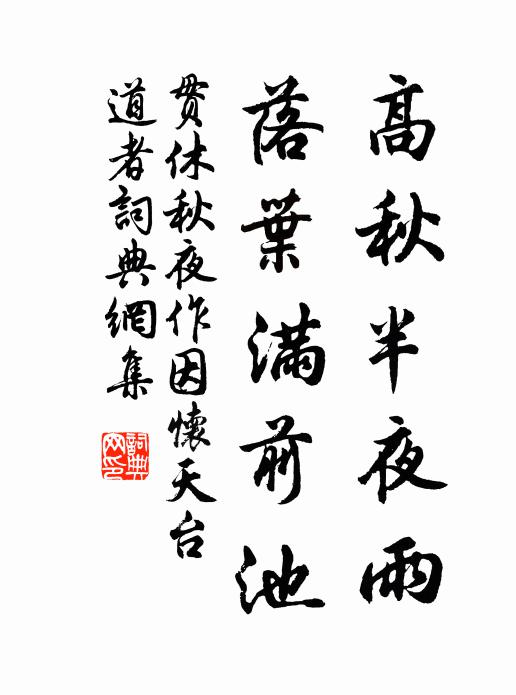 高秋半夜雨
落葉滿前池
貫休秋夜作因懷天台
道者詞典網集
詞典网印